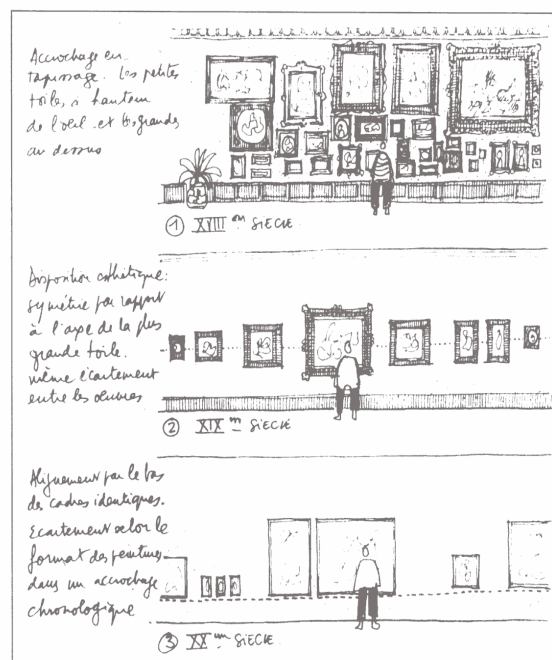 Accrochage en
tapissage. les petites
toiles, a hauteur
de l'oeil et les grandes
au dessus
① XVIII em SIECLE
Disposition esthétique:
symétrie par rapport
à l'axe de la plus
grande toile.
même écartement
entre les oeuvres
② XIX m SIECLE
Alignement par le bas
des cadres identiques.
Ecartement selon le
format des peintures
dans un accrochage
chronologique
③ XX em SIECLE